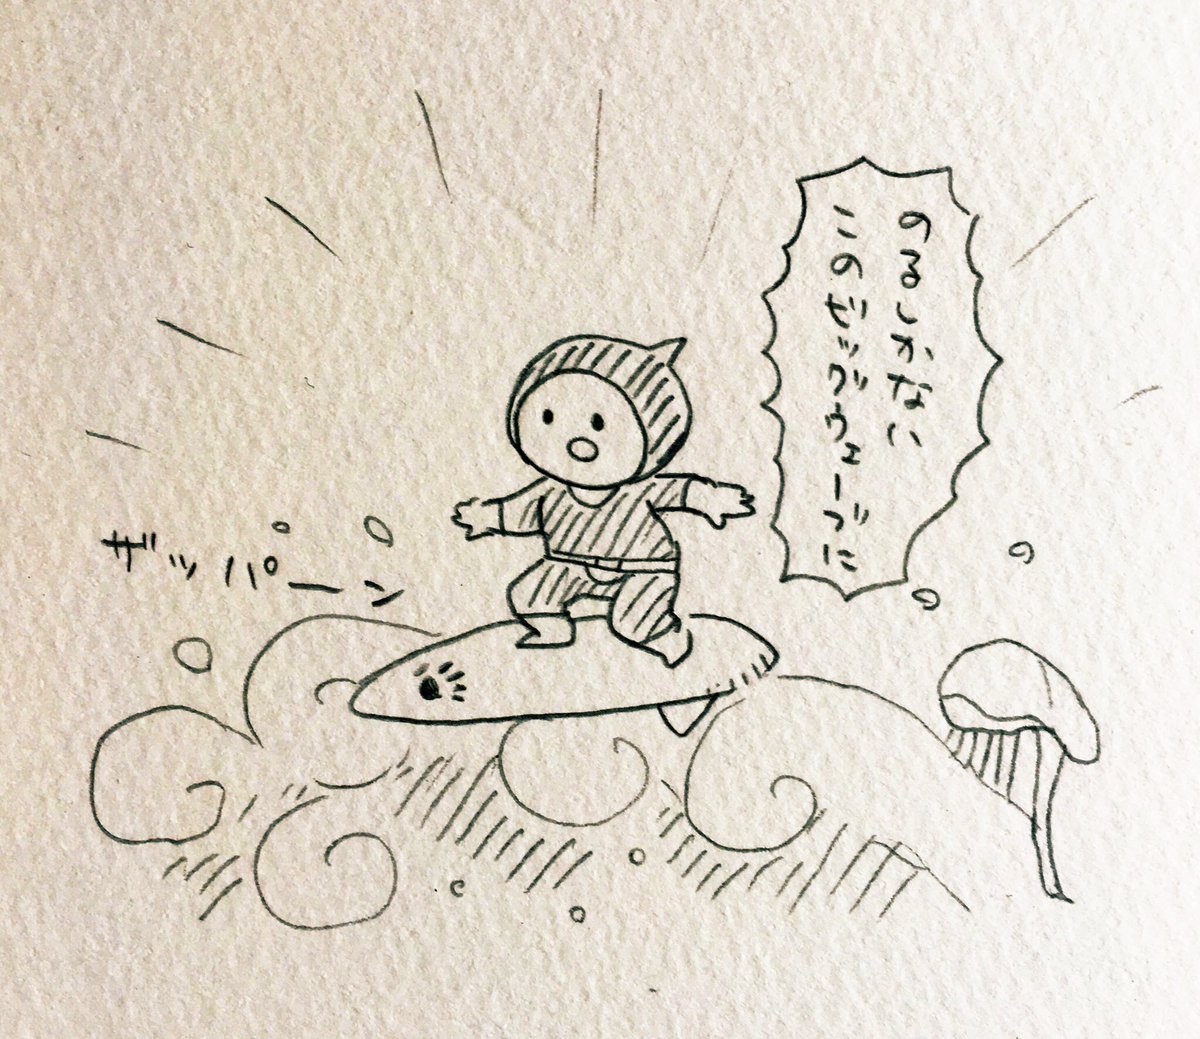 のるしかない
このビッグウェーブに
ザッパーン